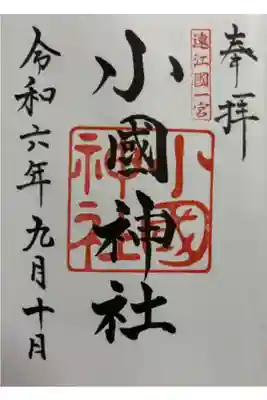 奉拝
遠江國一宮
小國神社
小國神社
令和六年九月十日